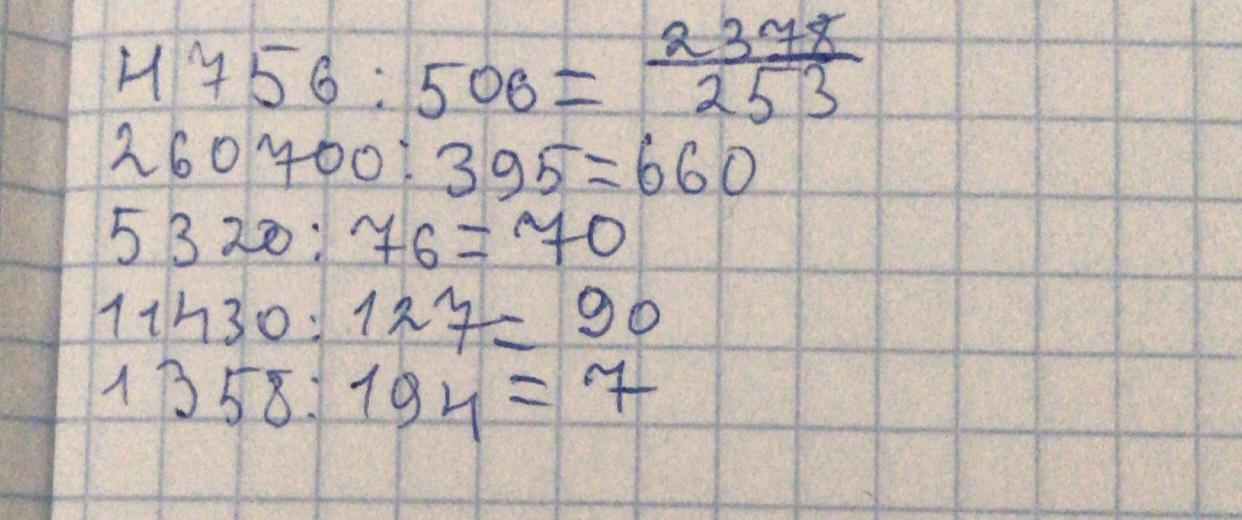 4756 : 506 = 2378/253
260700 : 395 = 660
5320 : 76 = 70
11430 : 127 = 90
1358 : 194 = 7